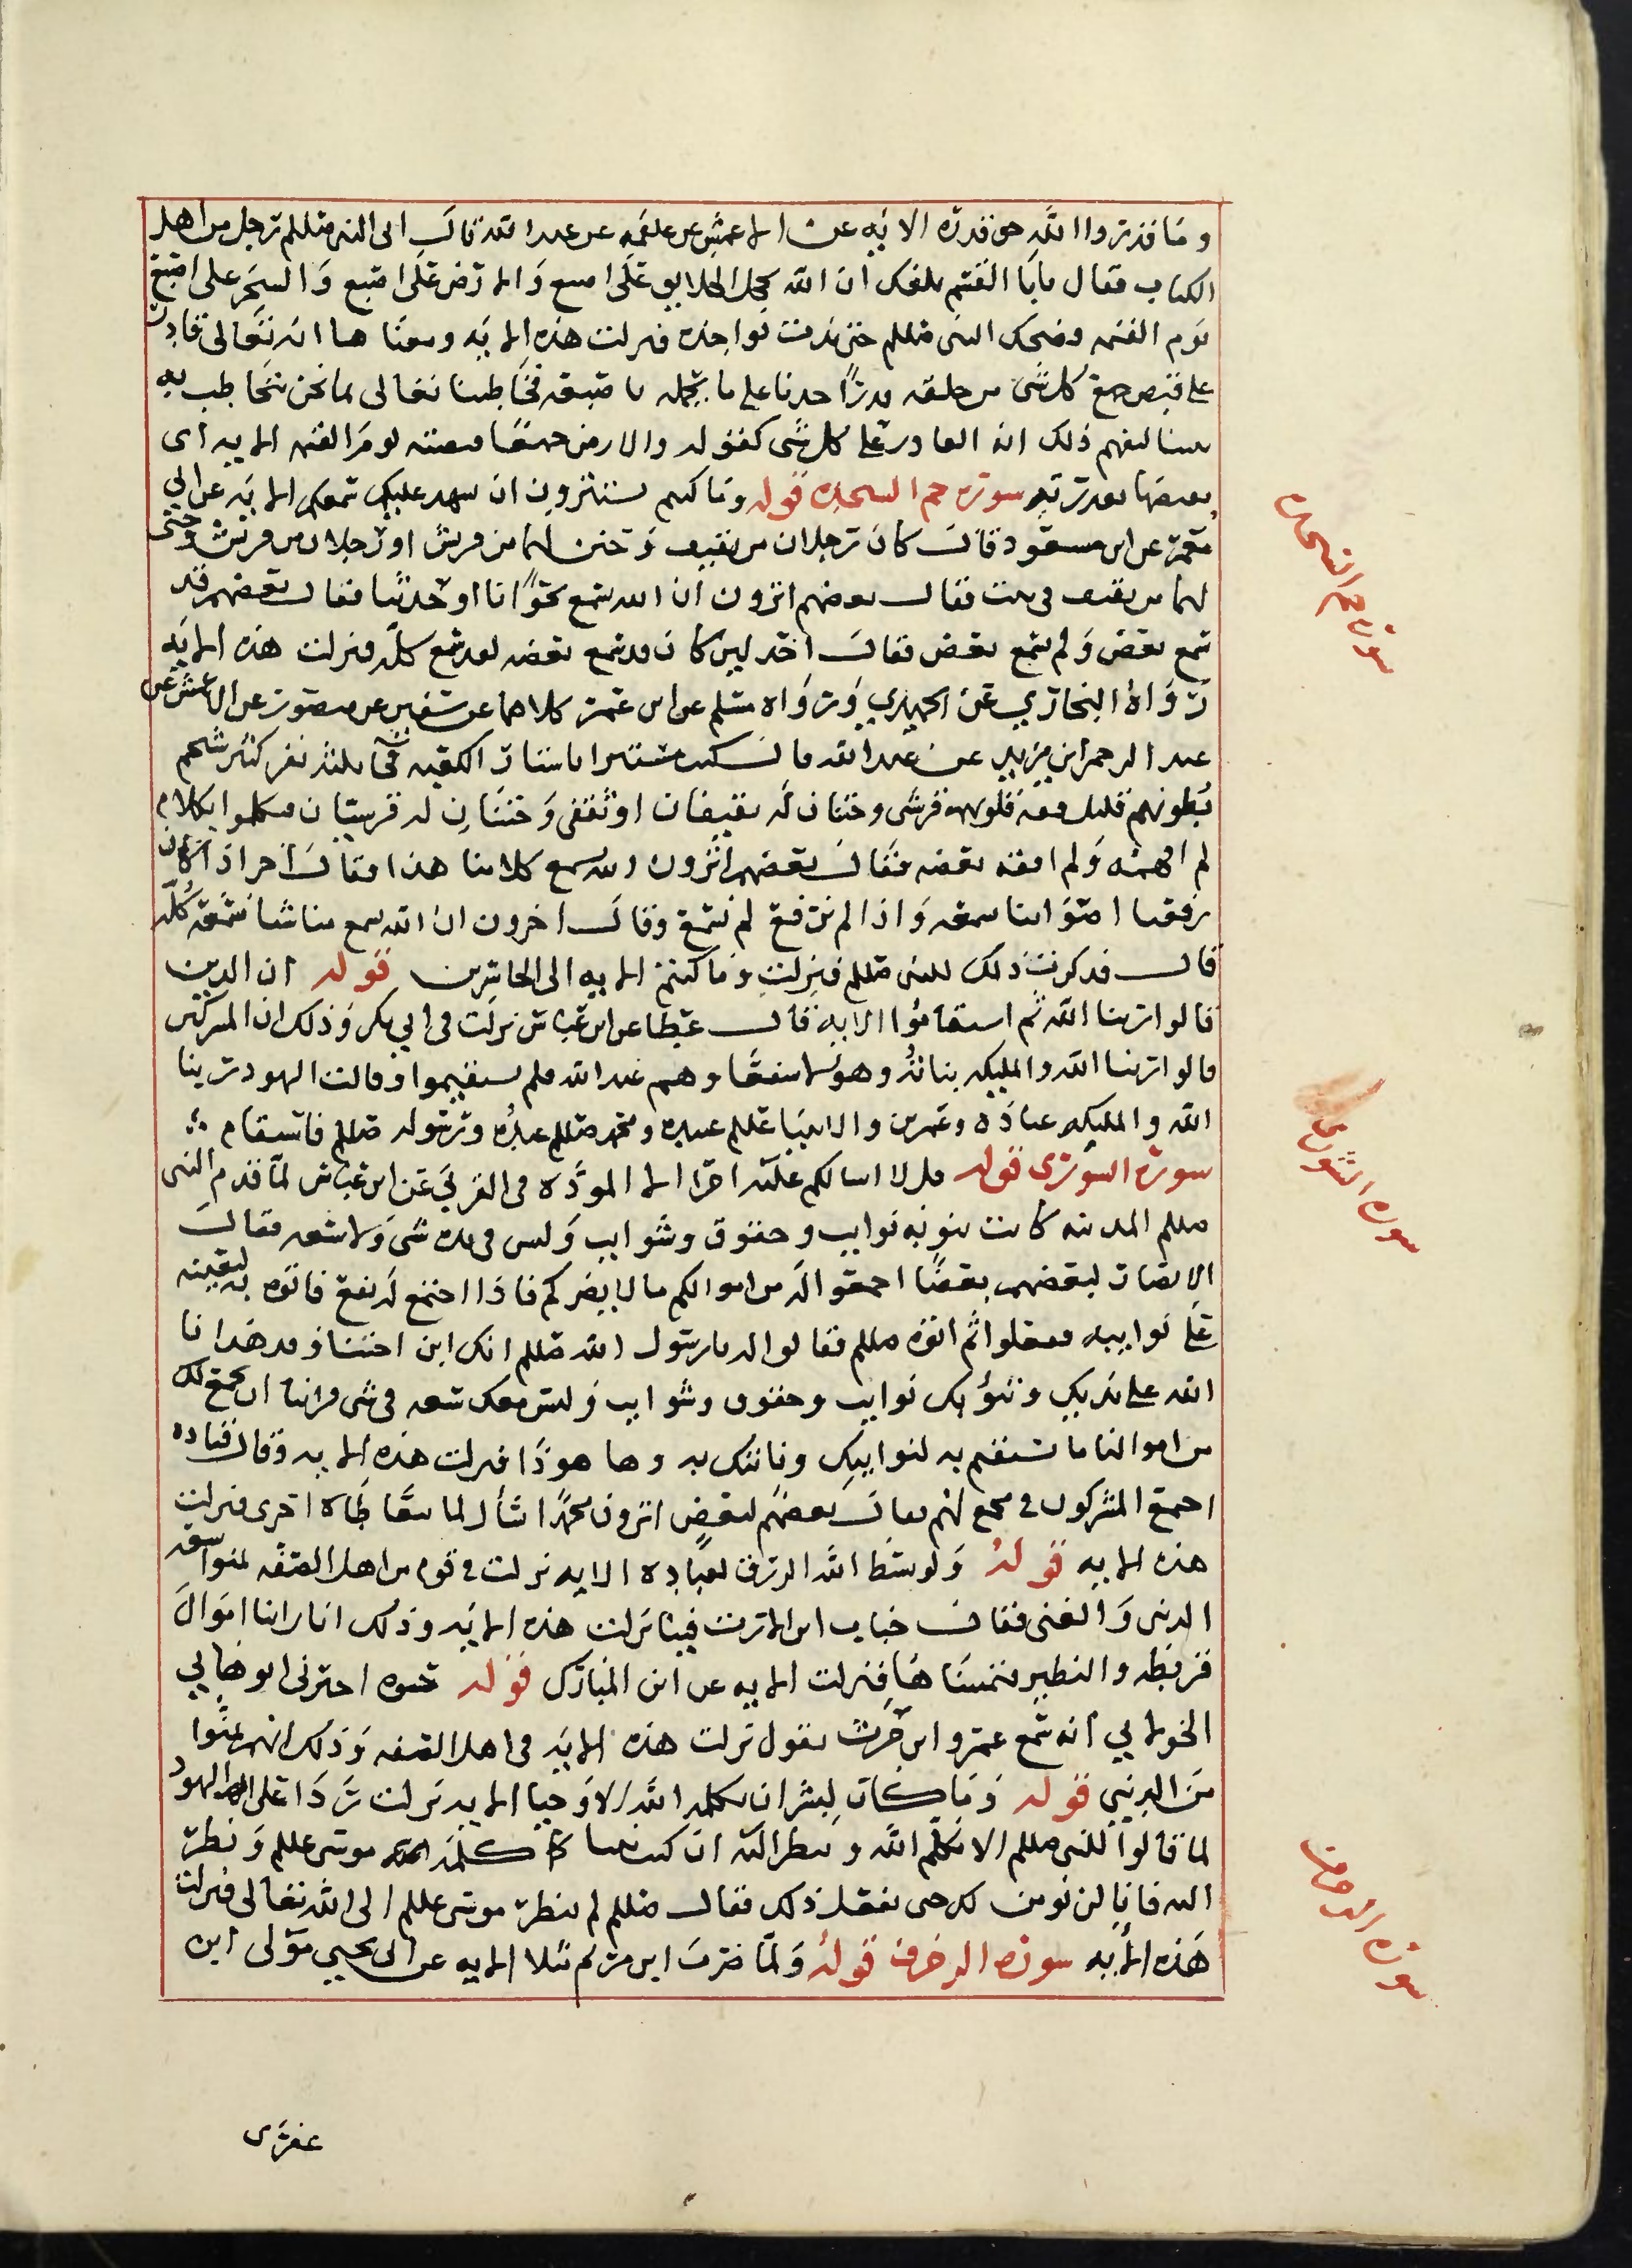 وما قدروا الله حق قدره الايه عن الاعمش عن علقمه عن عبد الله قال اتى النبى صللم رجل من اهل
الكتاب فقال يابا القسم بلغك ان الله يحمل الخلايق على اصبع والارض على اصبع والشجر على اصبع
يوم القيمه فضحك النبى صللم حتى بدت نواجذه فنزلت هذه الايه ومعنا هذا انه تعالى قادر
على قبض جميع كل شى من خلقه قدرة احدنا على ما يحمله باصبعه فخاطبنا تعالى بما نحن نتخاطب به
بيننا لنفهم ذلك انه القادر على كل شى كقوله والارض جميعا قبضته يوم القيمه الايه اى
يقبضها بقدرته سورة حم السجده قوله وما كنتم تستترون ان يشهد عليكم سمعكم الايه عن ابي
معمر عن ابن مسعود قال كان رجلان من ثقيف وختن لهما من قريش او رجلان من قريش وختن
لهما من ثقيف فى بيت فقال بعضهم اترون ان الله يسمع نجوانا او حديثنا فقال بعضهم قد
سمع بعض ولم يسمع بعض فقال اخر لين كان قد سمع بعضه لقد سمع كله فنزلت هذه الايه
رواه البخاري عن الحميدي ورواه مسلم عن ابن عمر كلاهما عن سفين عن منصور عن الاعمش عن
عبد الرحمن ابن يزيد عن عبد الله قال كنت مستترا باستار الكعبه فجا ثلثه نفر كثير شحم
بطونهم قليل فقه قلوبهم قرشى وختنان له ثقيفان او ثقفى وختنان له قرشيان فتكلموا بكلام
لم افهمه ولم افقه بعضه فقال بعضهم اترون الله يسمع كلامنا هذا فقال اخر اذا كان
رفعنا اصواتنا سمعه واذا لم نرفع لم يسمع وقال اخرون ان الله سمع منا شيا سمعه كله
قال فذكرت ذلك للنبى صللم فنزلت وما كنتم الايه الى الخاسرين قوله ان الذين
قالوا ربنا الله ثم استقاموا الايه قال عطا عن ابن عباس نزلت فى ابي بكر وذلك ان المشركين
قالوا ربنا الله والمليكه بناته وهولا شفعا وهم عند الله فلم يستقيموا وقالت اليهود ربنا
الله والمليكه عباده وعزير والانبيا عللم عبيده ومحمد صللم عبده ورسوله صللم فاستقام
سورة الشورى قوله قل لا اسالكم عليه اجرا الا الموده فى القربي عن ابن عباس لما قدم النبى
صللم المدينه كانت تنوبه نوايب وحقوق وشوايب وليس فى يده شى ولا سعه فقال
الانصار لبعضهم بعضا اجمعوا له من اموالكم ما لا يضركم فاذا اجتمع له نفع فاتوه به ليعينه
على نوايبه ففعلوا ثم اتوه صللم فقالوا له يارسول الله صللم انك ابن اختنا وقد هدانا
الله على يديك وتنوبك نوايب وحقوق وشوايب وليس معك سعه فى شى فراينا ان نجمع لك
من اموالنا ما تستعين به لنوايبك وناتيك به وها هو ذا فنزلت هذه الايه وقال قتاده
اجمع المشركون فى مجمع لهم فقال بعضهم لبعض اترون محمدا يسال لما يتعاطاه اجرى فنزلت
هذه الايه قوله ولو بسط الله الرزق لعباده الايه نزلت فى قوم من اهل الصفه تمنوا سعه
الدنى والغنى فقال خباب ابن الارت فينا نزلت هذه الايه وذلك انا راينا اموال
قريظه والنظير فتمنيناها فنزلت الايه عن ابن المبارك قوله حيوه اخبرنى ابو هاني
الخولاني انه سمع عمرو ابن حريث يقول نزلت هذه الايه فى اهل الصفه وذلك انهم تمنوا
من الدنيي قوله وما كان لبشر ان يكلمه الله الا وحيا الايه نزلت ردا على اليهود
لما قالوا للنبى صللم الا تكلم الله وتنظر اليه ان كنت نبيا كما كلمه موسى عللم ونظر
اليه فانا لن نومن لك حتى تفعل ذلك فقال صللم لم ينظر موسى عللم الى الله تعالى فنزلت
هذه الايه سورة الزخرف قوله ولما ضرب ابن مريم مثلا الايه عن ابى يحيي مولى ابن
عفرى
سورة حم السجده
سورة الشورى
سورة الزخرف